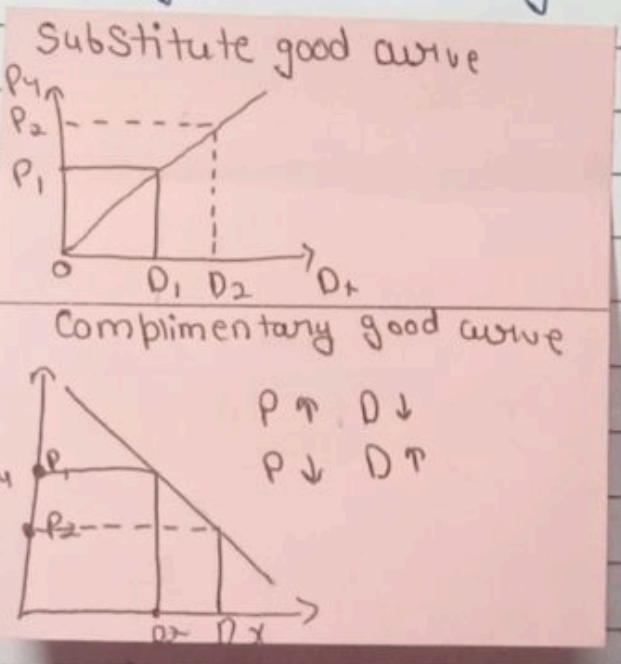 Substitute good curve
Py
P2
P1
O
D1 D2 Dx
Complimentary good curve
P ↑ D ↓
P ↓ D ↑
P1
y
P2